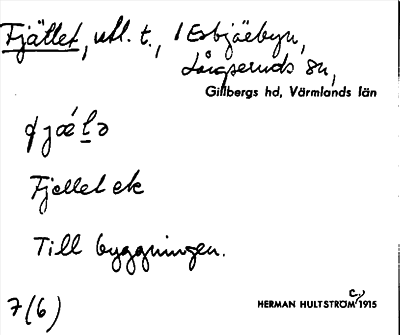 Fjätlet, utl. t., i Esbjäebyn,
Långseruds sn,
Gillbergs hd, Värmlands län
Fjellet ek
Till byggningen.
7(6) HERMAN HULTSTRÖM c., 1915